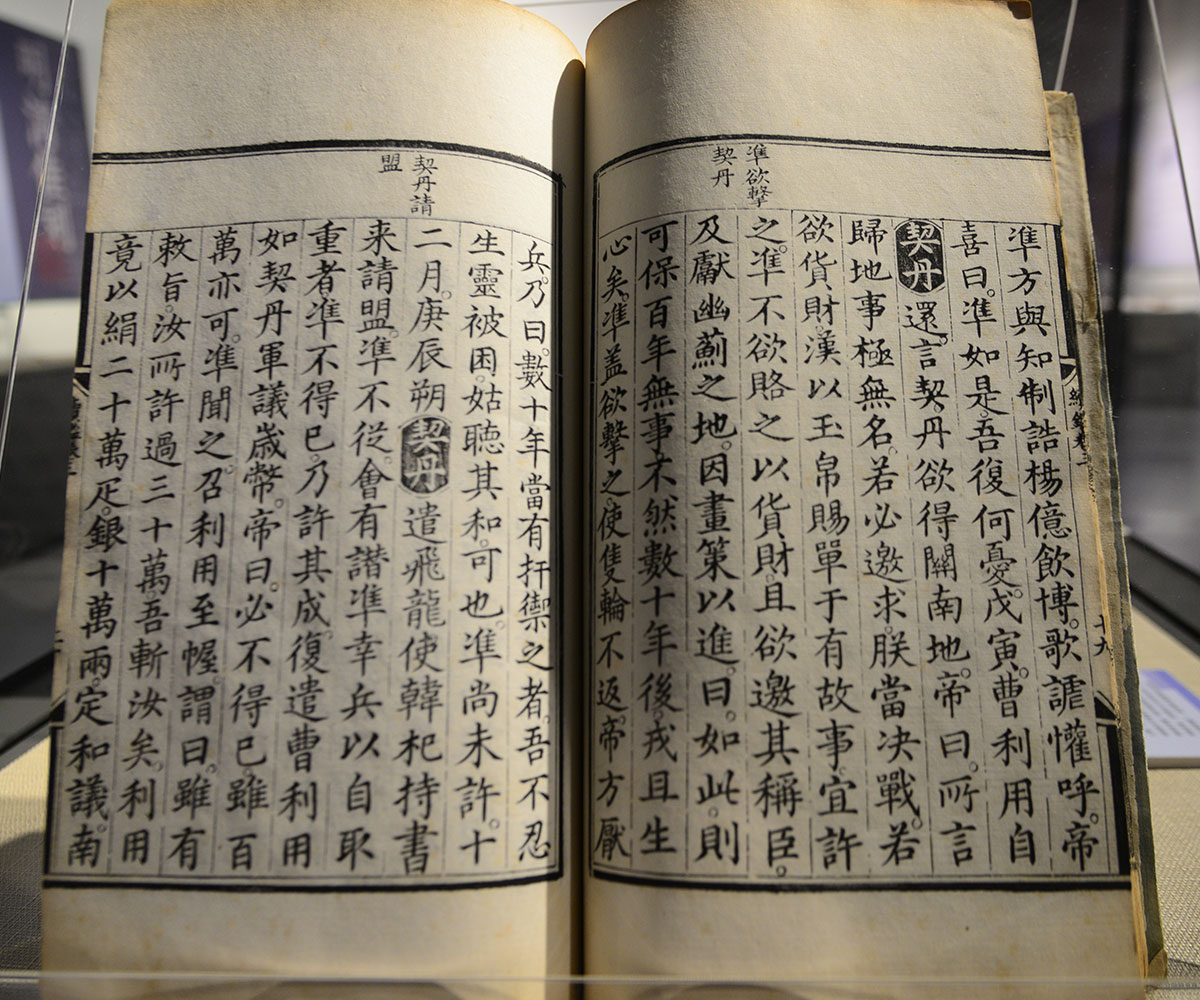 準欲擊
契丹
準方與知制誥楊億飲博。歌謔懽呼。帝
喜曰。準如是。吾復何憂。戊寅。曹利用自
契丹還。言契丹欲得關南地。帝曰。所言
歸地事極無名。若必邀求。朕當决戰。若
欲貨財。漢以玉帛賜單于有故事。宜許
之。準不欲賂之以貨財。且欲邀其稱臣。
及獻幽薊之地。因畫策以進。曰。如此。則
可保百年無事。不然。數十年後。戎且生
心矣。準盖欲擊之。使隻輪不返。帝方厭
十九
契丹請
盟
兵。乃曰。數十年當有扞禦之者。吾不忍
生靈被困。姑聽其和。可也。準尚未許。十
二月。庚辰朔。契丹遣飛龍使韓杞持書
来請盟。準不從。會有譖準幸兵以自取
重者。準不得已。乃許其成。復遣曹利用
如契丹軍議歲幣。帝曰。必不得已。雖百
萬亦可。準聞之。召利用至幄。謂曰。雖有
敕旨。汝所許過三十萬。吾斬汝矣。利用
竟以絹二十萬疋。銀十萬兩。定和議。南